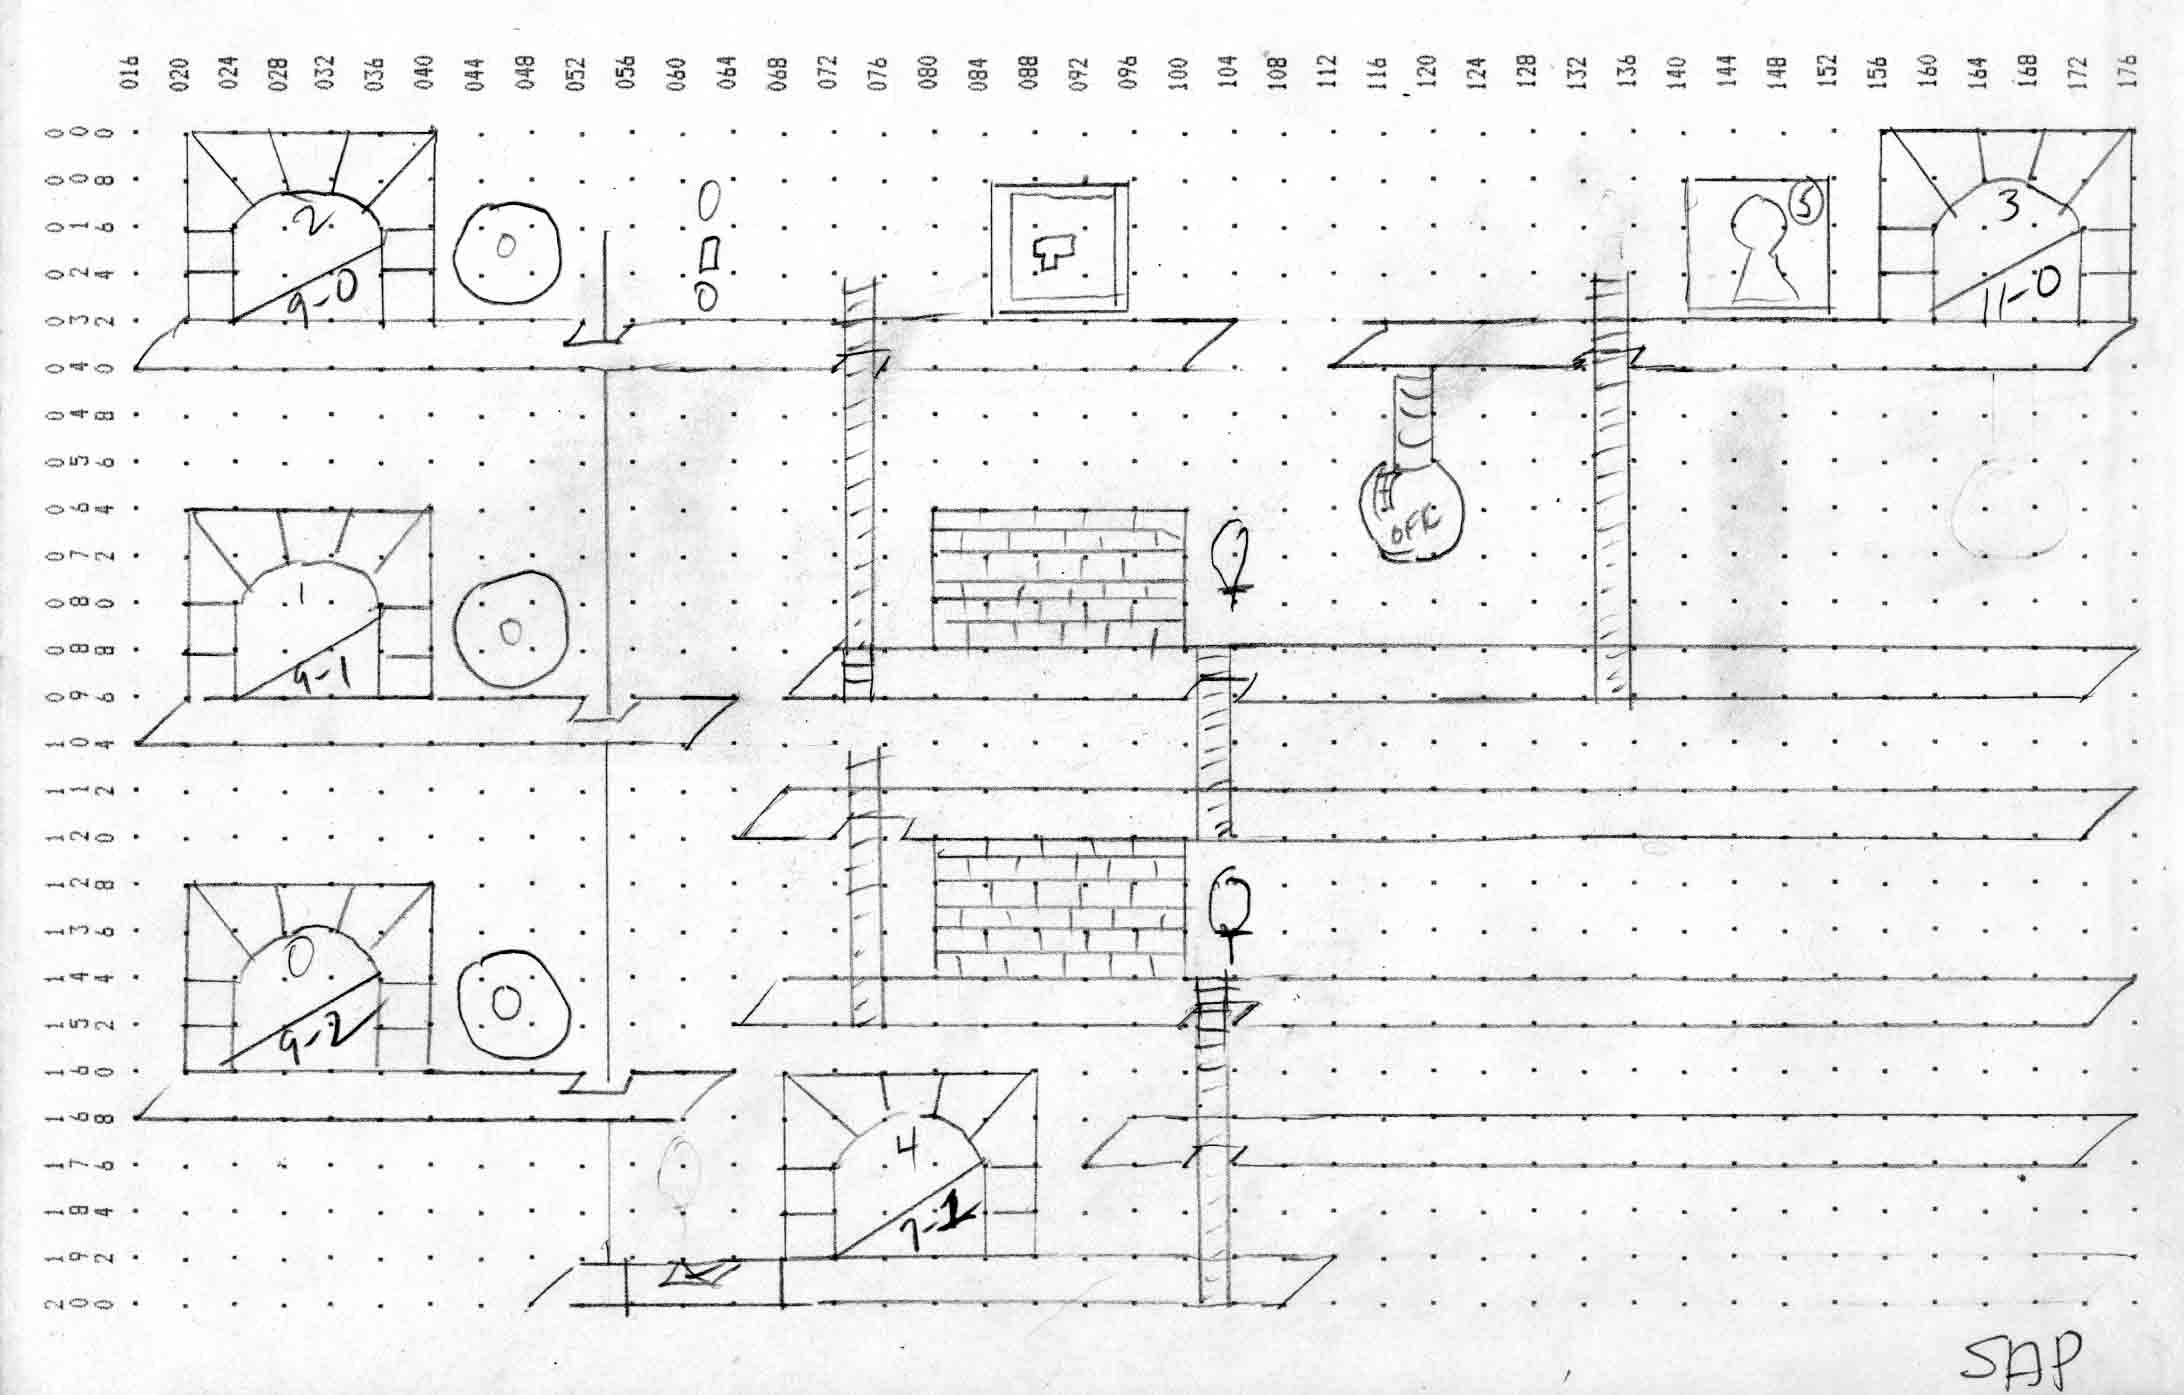 016 020 024 028 032 036 040 044 048 052 056 060 064 068 072 076 080 084 088 092 096 100 104 108 112 116 120 124 128 132 136 140 144 148 152 156 160 164 168 172 176
000
008
5
016
2 3
024
9-0 11-0
032
040
048
056
064
OFF
072
080
1
088
9-1
096
104
112
120
128
136
0
144
152
9-2
160
168
176
4
184
7-1
192
200
SAP